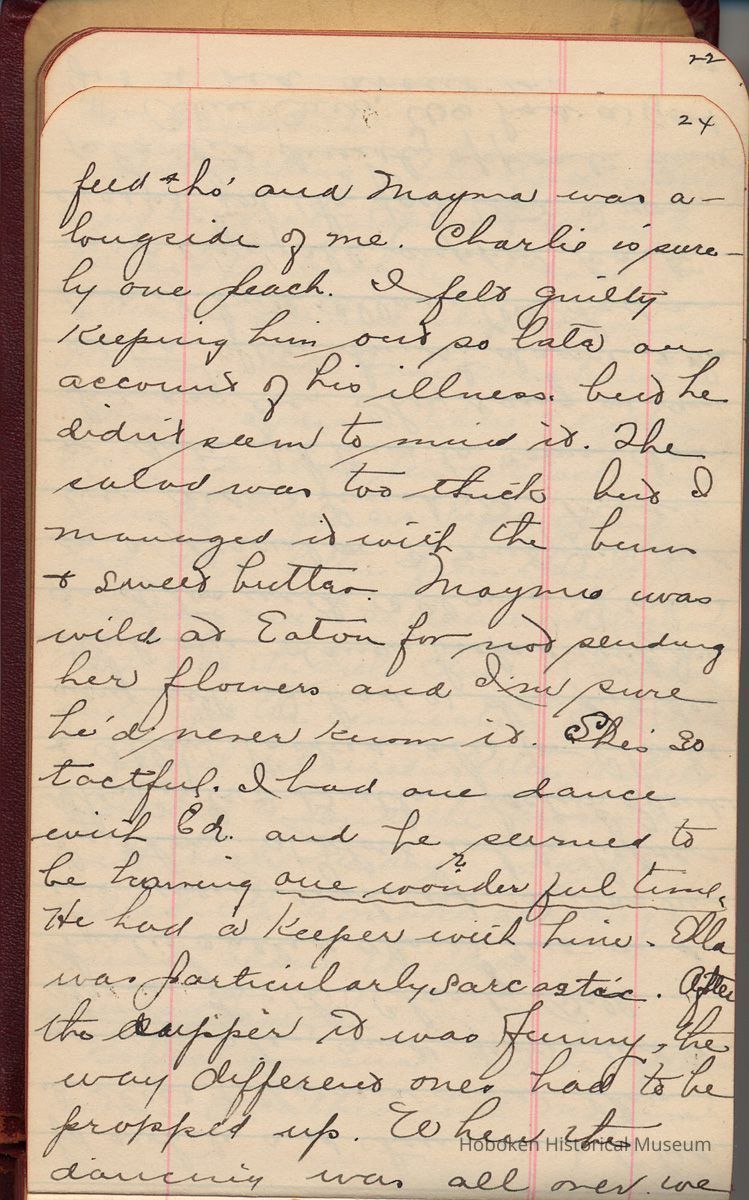 22
24
feed tho' and Mayme was a-
longside of me. Charlie is sure-
ly one peach. I felt guilty
keeping him out so late on
account of his illness. but he
didn't seem to mind it. The
salad was too thick but I
managed it with the buns
+ sweet butter. Mayme was
wild at Eaton for not sending
her flowers and I'm sure
he'd never know it. She's so
tactful. I had one dance
with Ed. and he seemed to
be having one wonder ful time.
?
He had a keeper with him. Ella
was particularly sarcastic. After
the supper it was funny, the
way different ones had to be
propped up. When the
dancing was all over we
Hoboken Historical Museum